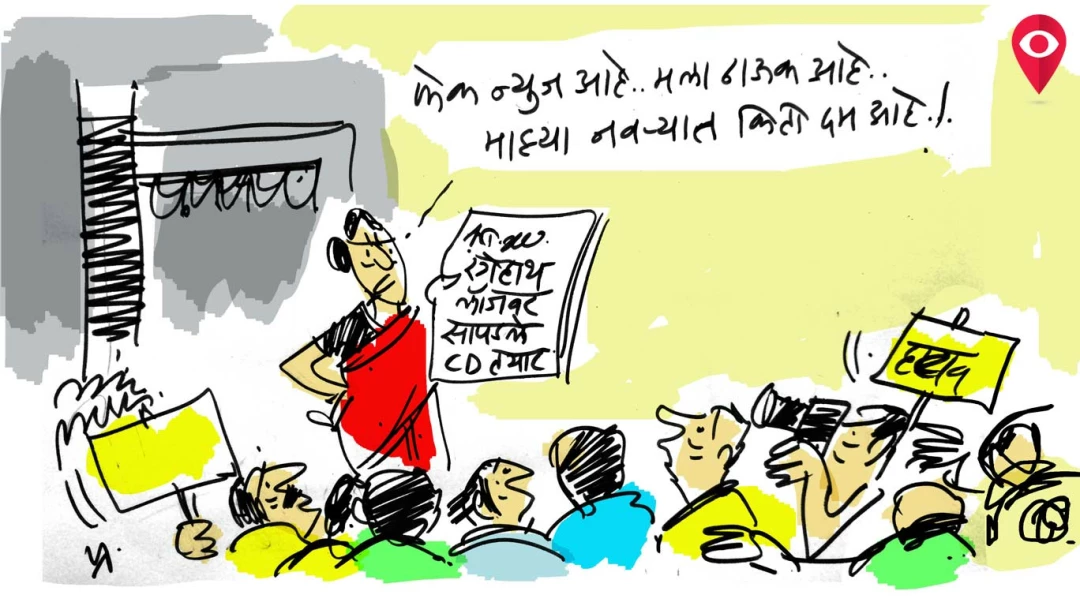 फेक न्यूज आहे.. मला ठाऊक आहे..
माझ्या नवऱ्यात किती दम आहे.!
रंगेहाथ
लॉजवर
सापडले
CD तयार
हटाव
प्र.